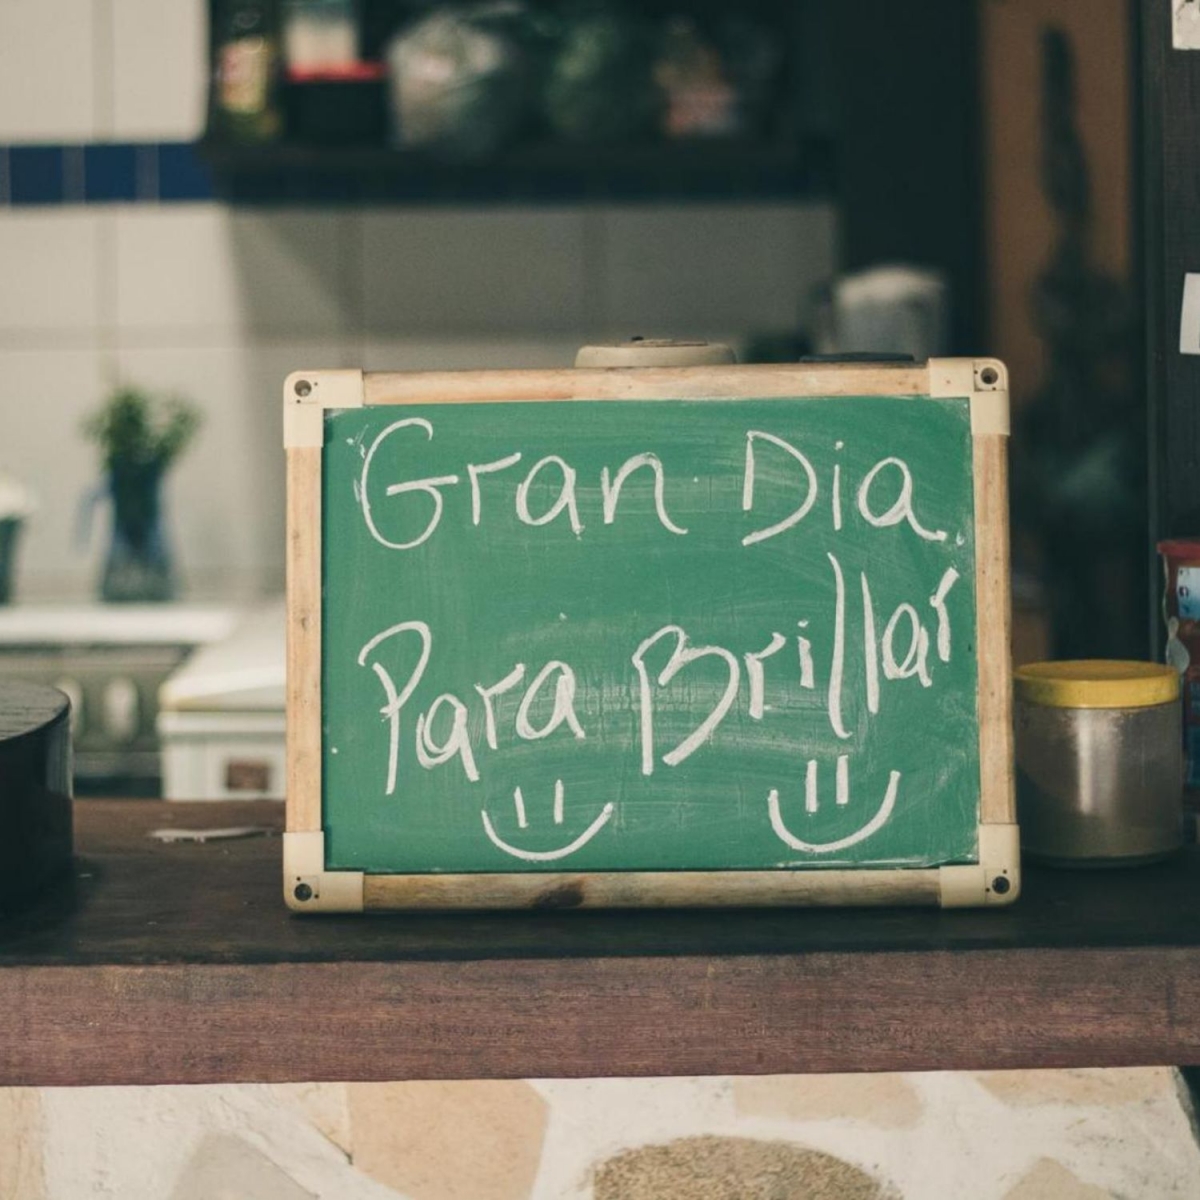 Gran Dia
Para Brillar